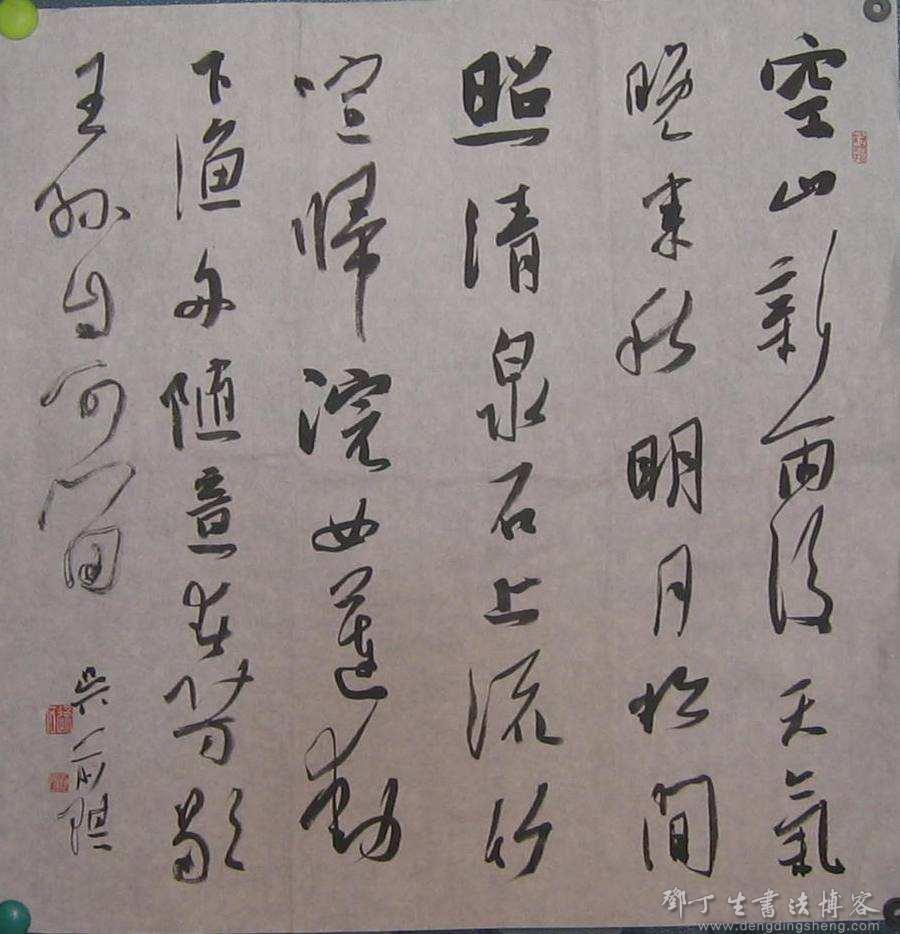 空山新雨後天氣
晚来秋明月松間
照清泉石上流竹
喧歸浣女蓮動
下漁舟随意春芳歇
王孫自可留
吴
鄧丁生書法博客
www.dengdingsheng.com